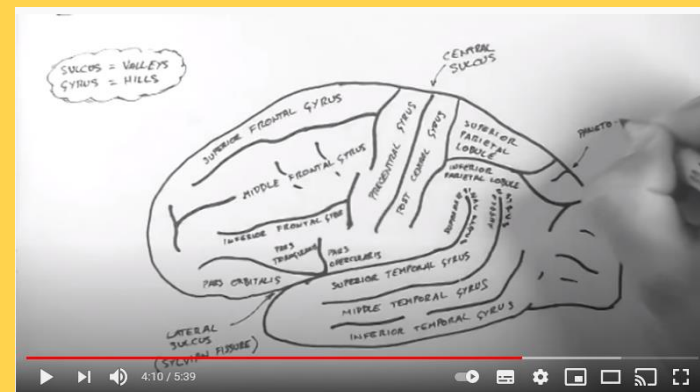 SULCUS = VALLEYS
GYRUS = HILLS
CENTRAL
SULCUS
SUPERIOR FRONTAL GYRUS
MIDDLE FRONTAL GYRUS
INFERIOR FRONTAL GYRUS
PARS
PARS ORBITALIS
PARS
OPERCULARIS
PRECENTRAL GYRUS
POST CENTRAL GYRUS
SUPERIOR
PARIETAL
LOBULE
INFERIOR
PARIETAL LOBULE
GYRUS
PARIETO-
SUPERIOR TEMPORAL GYRUS
MIDDLE TEMPORAL GYRUS
INFERIOR TEMPORAL GYRUS
LATERAL
SULCUS
(SYLVIAN FISSURE)
4:10 / 5:39